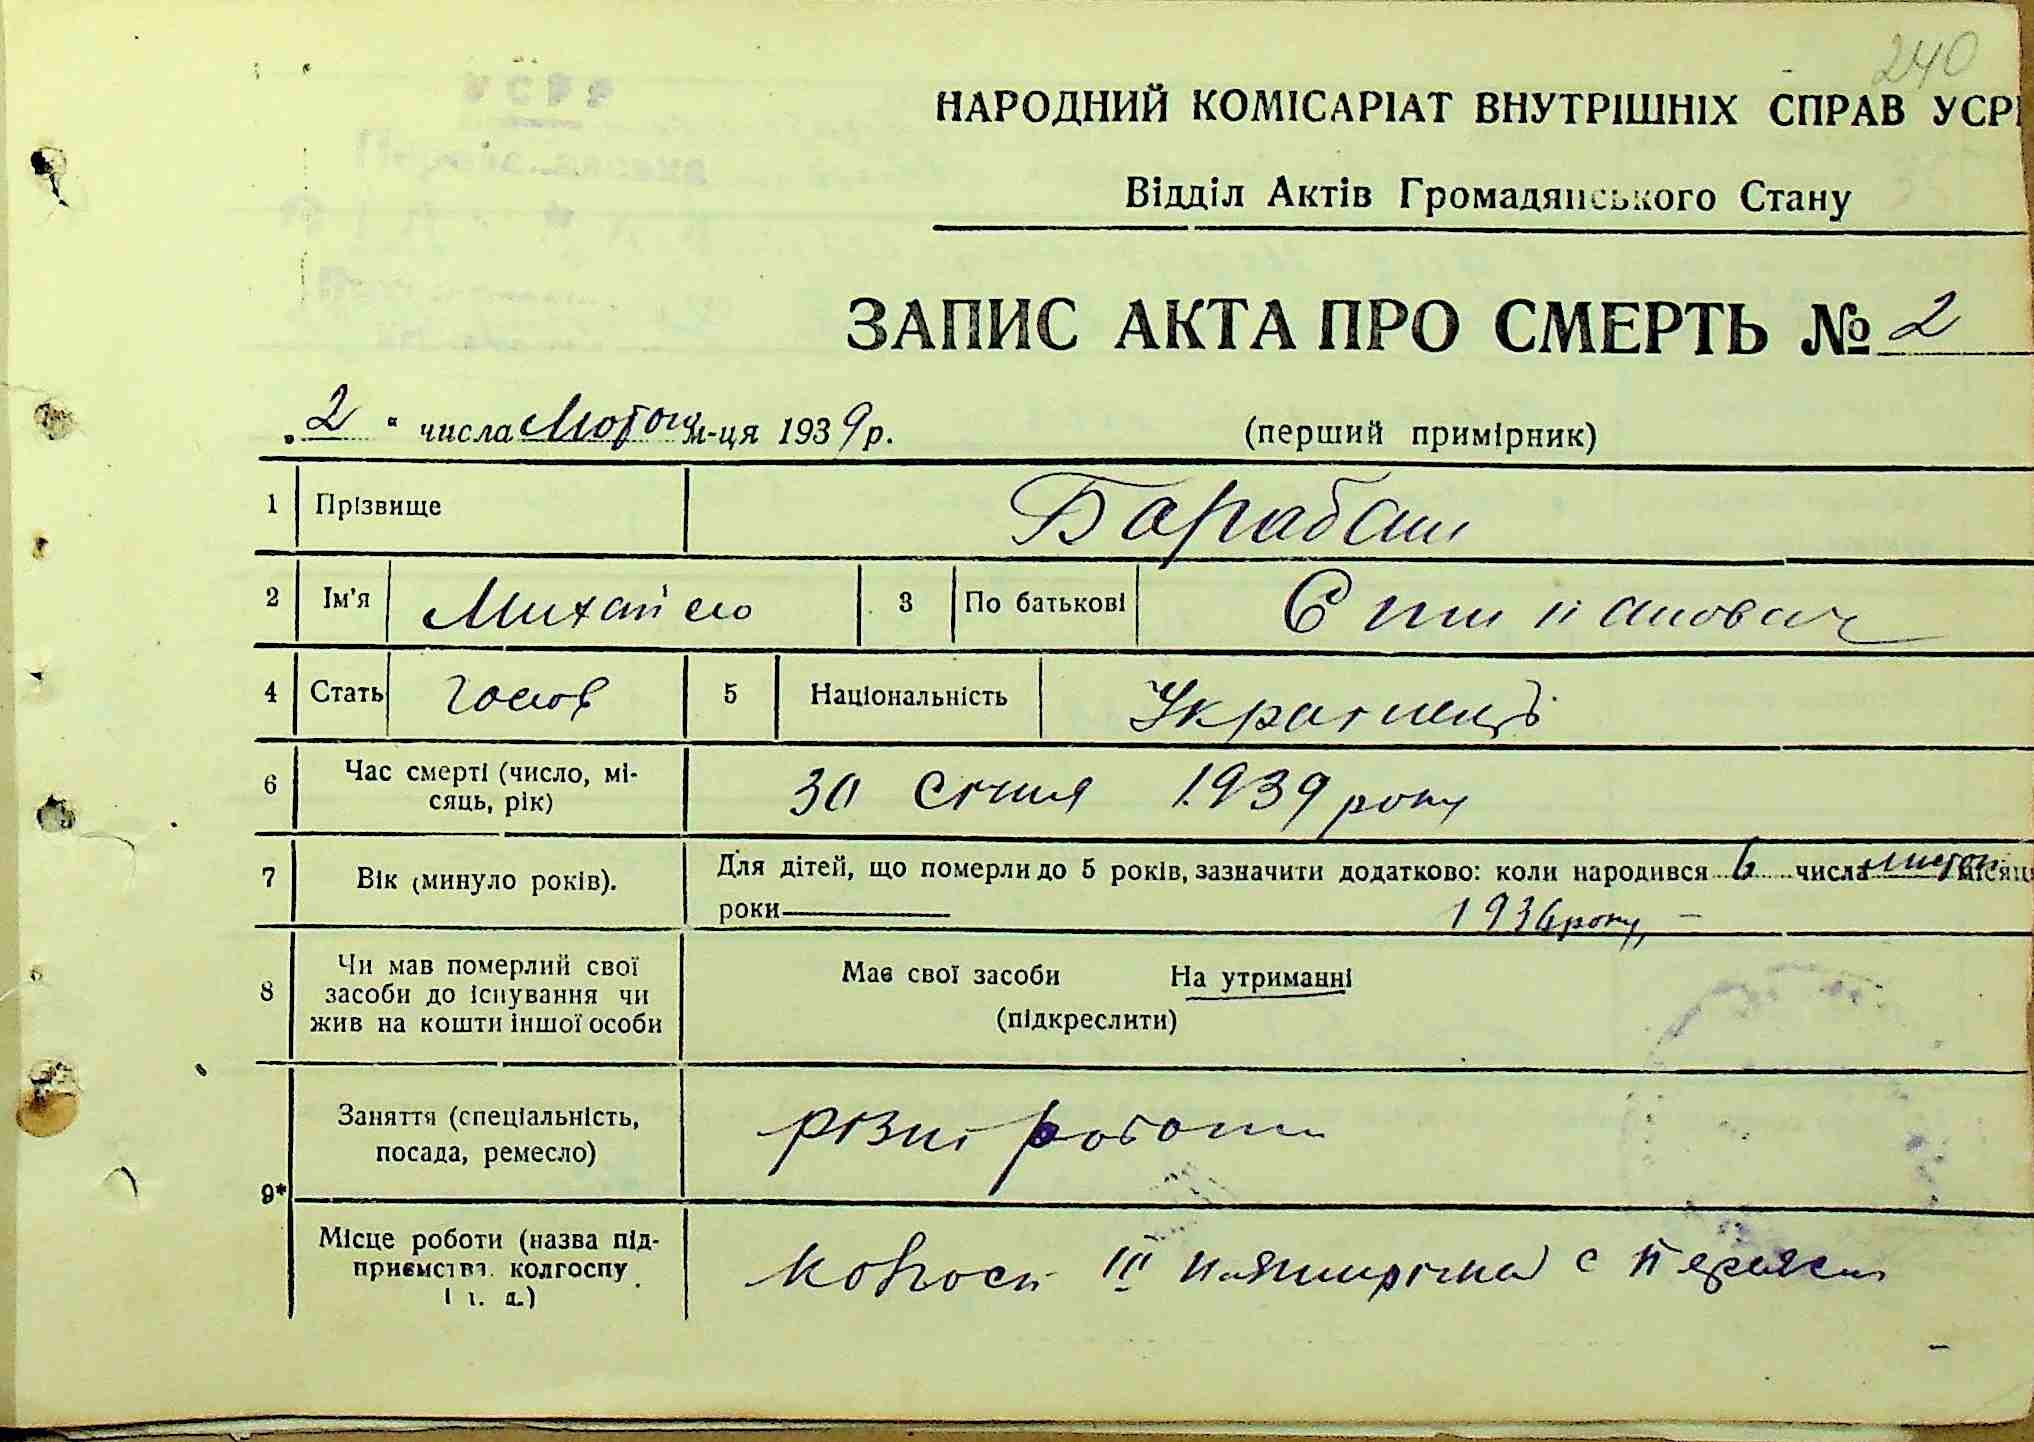 240
НАРОДНИЙ КОМІСАРІАТ ВНУТРІШНІХ СПРАВ УСРР
Відділ Актів Громадянського Стану
ЗАПИС АКТА ПРО СМЕРТЬ № 2
„2“ числа Лютого м-ця 1939 р. (перший примірник)
1 Прізвище Барабаш
2 Ім'я Михайло 3 По батькові Степанович
4 Стать чолов 5 Національність Українець
6 Час смерті (число, мі-
сяць, рік) 30 січня 1939 року
7 Вік (минуло років). Для дітей, що померли до 5 років, зазначити додатково: коли народився 6 числа листоп місяц
роки 1936 року,
8 Чи мав померлий свої
засоби до існування чи
жив на кошти іншої особи
Має свої засоби На утриманні
(підкреслити)
9*
Заняття (спеціальність,
посада, ремесло) різні роботи
Місце роботи (назва під-
приємства, колгоспу
і т. д.) Колгосп ІІІ п'ятирічка с Переяс